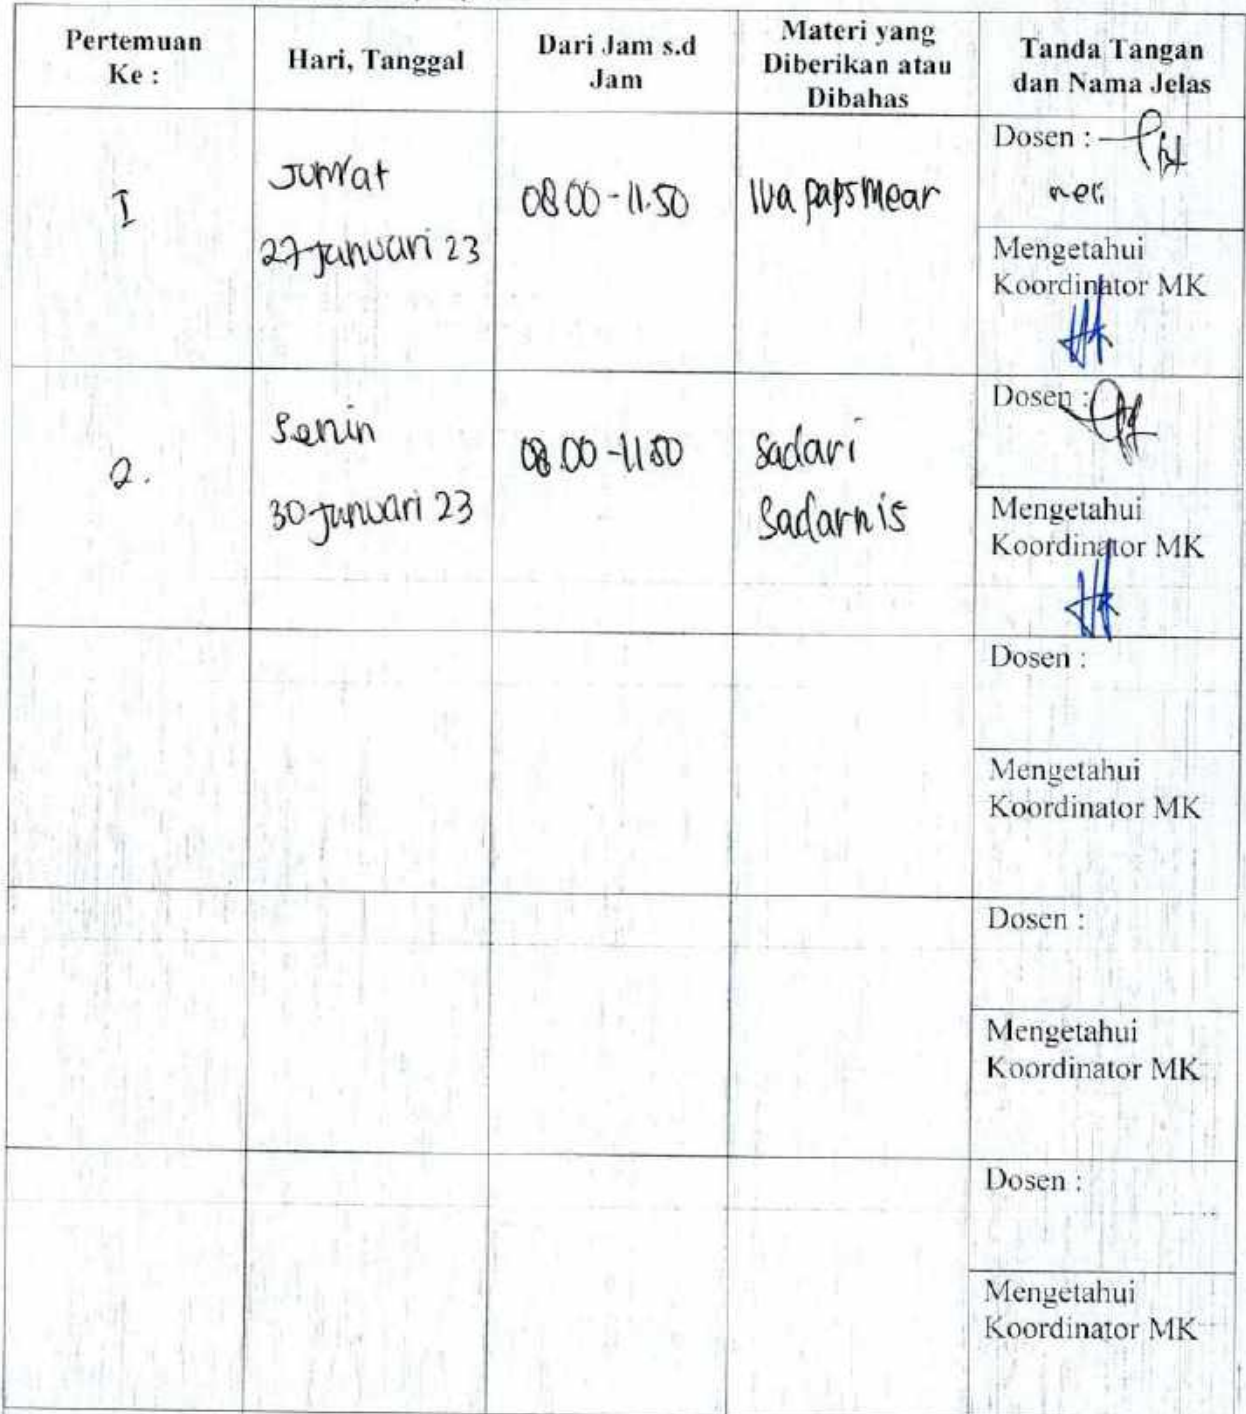 Pertemuan
Ke :
Hari, Tanggal
Dari Jam s.d
Jam
Materi yang
Diberikan atau
Dibahas
Tanda Tangan
dan Nama Jelas
I
Jum'at
27 Januari 23
08.00 - 11.50
Iva papsmear
Dosen :
neli
Mengetahui
Koordinator MK
2.
Senin
30 Januari 23
08.00 - 11.50
Sadari
Sadarnis
Dosen :
Mengetahui
Koordinator MK
Dosen :
Mengetahui
Koordinator MK
Dosen :
Mengetahui
Koordinator MK
Dosen :
Mengetahui
Koordinator MK